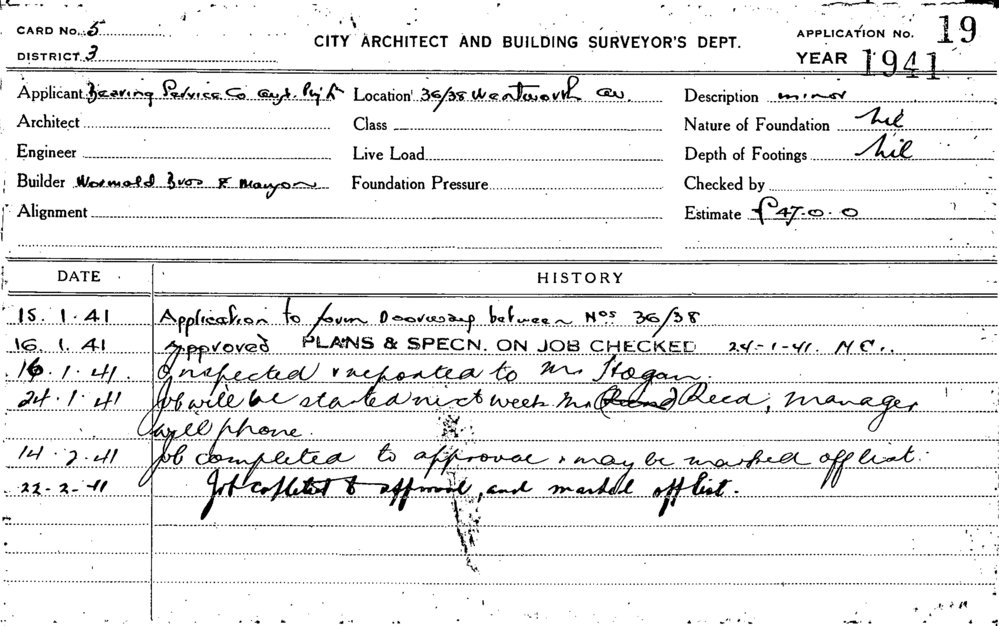 CARD No. 5
DISTRICT 3
CITY ARCHITECT AND BUILDING SURVEYOR'S DEPT.
APPLICATION No. 19
YEAR 1941
Applicant Bearing Service Co Location 36/38 Wentworth av. Description minor
Architect Class Nature of Foundation Nil
Engineer Live Load Depth of Footings Nil
Builder Wormald Bros & Foundation Pressure Checked by
Alignment Estimate £47.0.0
DATE HISTORY
15.1.41 Application to form Doorway between Nos 36/38
16.1.41 Approved PLANS & SPECN. ON JOB CHECKED 24-1-41. N.C..
16.1.41. Inspected & reported to Mr Hogan.
24.1.41 Job will be started next week. Mr Reed, manager
will phone.
14.2.41 Job completed to approval & may be marked off list.
22-2-41 Job copleted to approval, and marked off list.